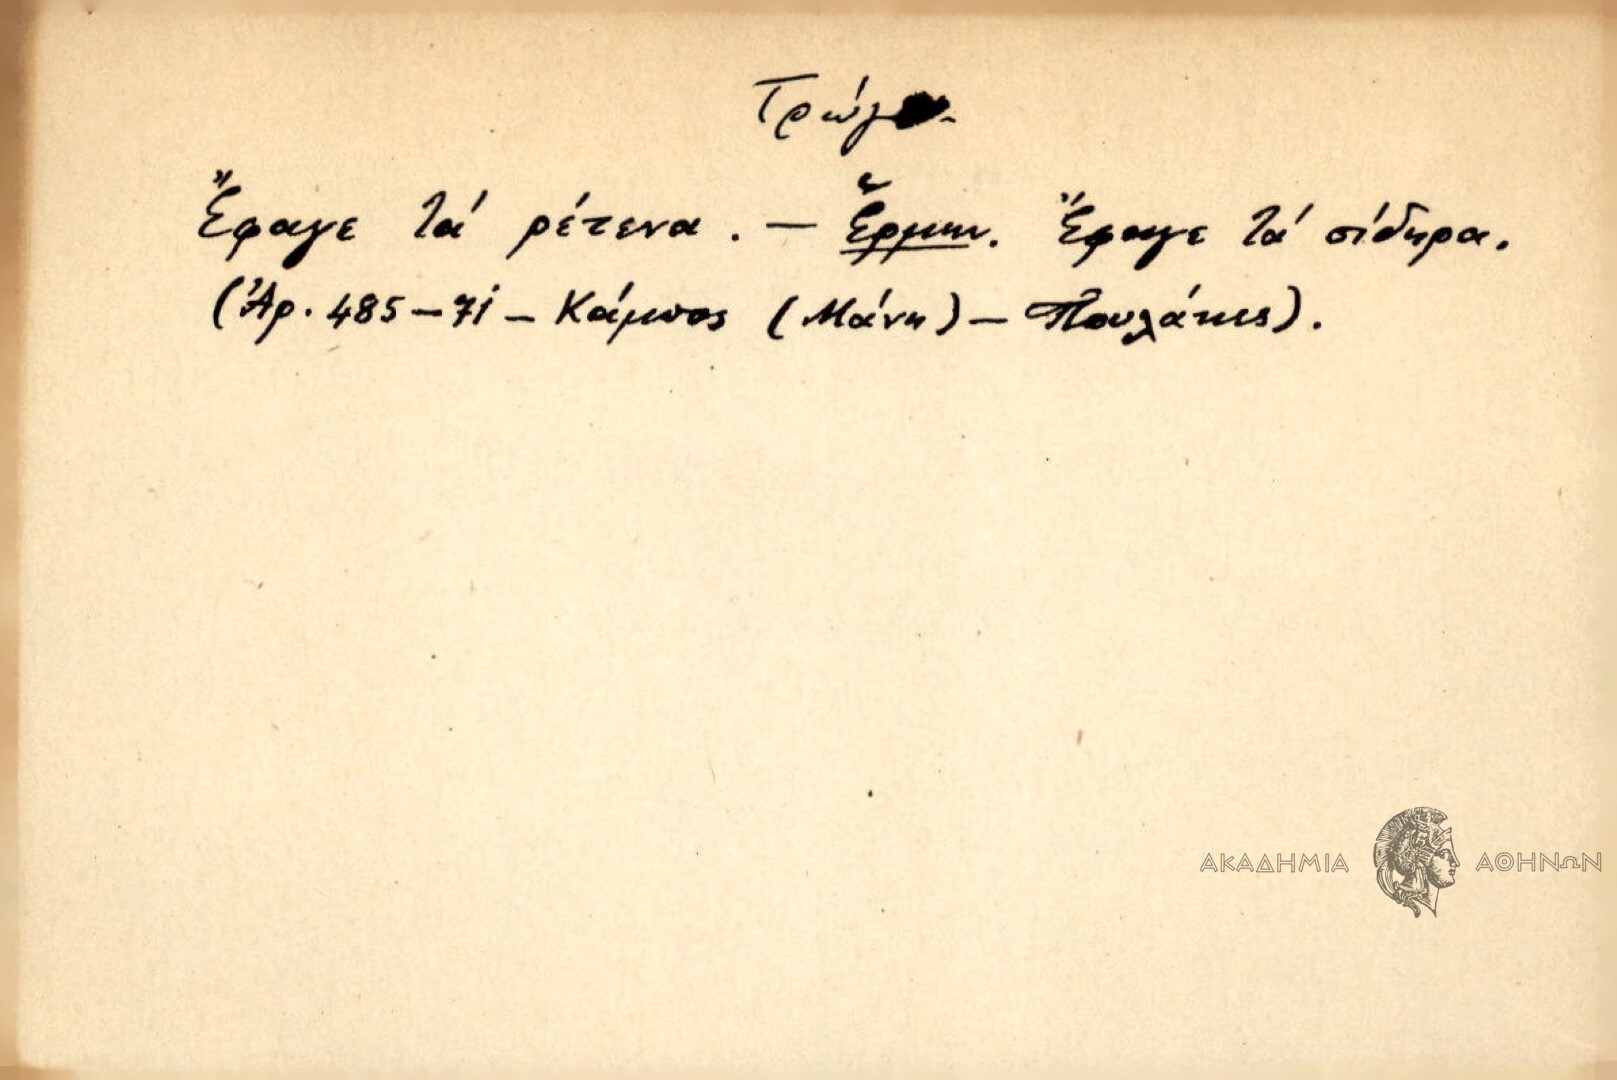 Τρώγω.
Ἔφαγε τά ρέτενα. — Ἑρμην. Ἔφαγε τά σίδηρα.
(Ἀρ. 485 – 71 – Κάμπος (Μάνη) – Πουλάκης).
ΑΚΑΔΗΜΙΑ ΑΘΗΝΩΝ